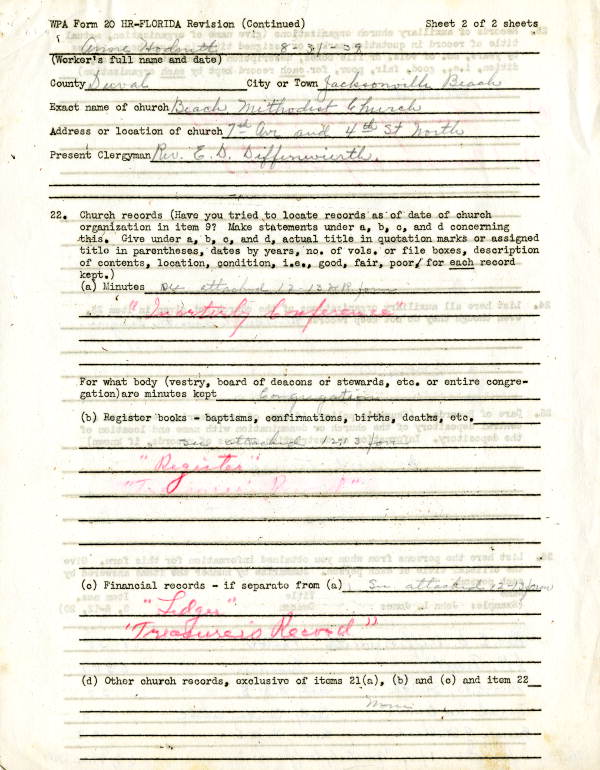 WPA Form 20 HR-FLORIDA Revision (Continued) Sheet 2 of 2 sheets
Anne 8-31-39
(Worker's full name and date)
County Duval City or Town Jacksonville Beach
Exact name of church Beach Methodist Church
Address or location of church 7th Ave and 4th St North
Present Clergyman Rev. E. D.
22. Church records (Have you tried to locate records as of date of church
organization in item 9? Make statements under a, b, c, and d concerning
this. Give under a, b, c, and d, actual title in quotation marks or assigned
title in parentheses, dates by years, no. of vols. or file boxes, description
of contents, location, condition, i.e., good, fair, poor/ for each record
kept.)
(a) Minutes See attached 12-13 HR form
"Quarterly Conference"
For what body (vestry, board of deacons or stewards, etc. or entire congre-
gation)are minutes kept Congregation
(b) Register books - baptisms, confirmations, births, deaths, etc.
See attached 12-13 form
"Register"
"Treasurer's Record"
(c) Financial records - if separate from (a) See attached 12-13 form
"Ledger"
"Treasurer's Record"
(d) Other church records, exclusive of items 21(a), (b) and (c) and item 22
None